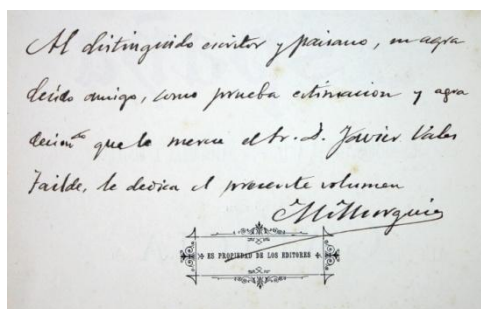 Al distinguido escritor y paisano, su agra
decido amigo, como prueba estimacion y agra
decimto que le merece el Sr. D. Javier Vales
Failde, le dedica el presente volumen
M. Murguia
ES PROPIEDAD DE LOS EDITORES